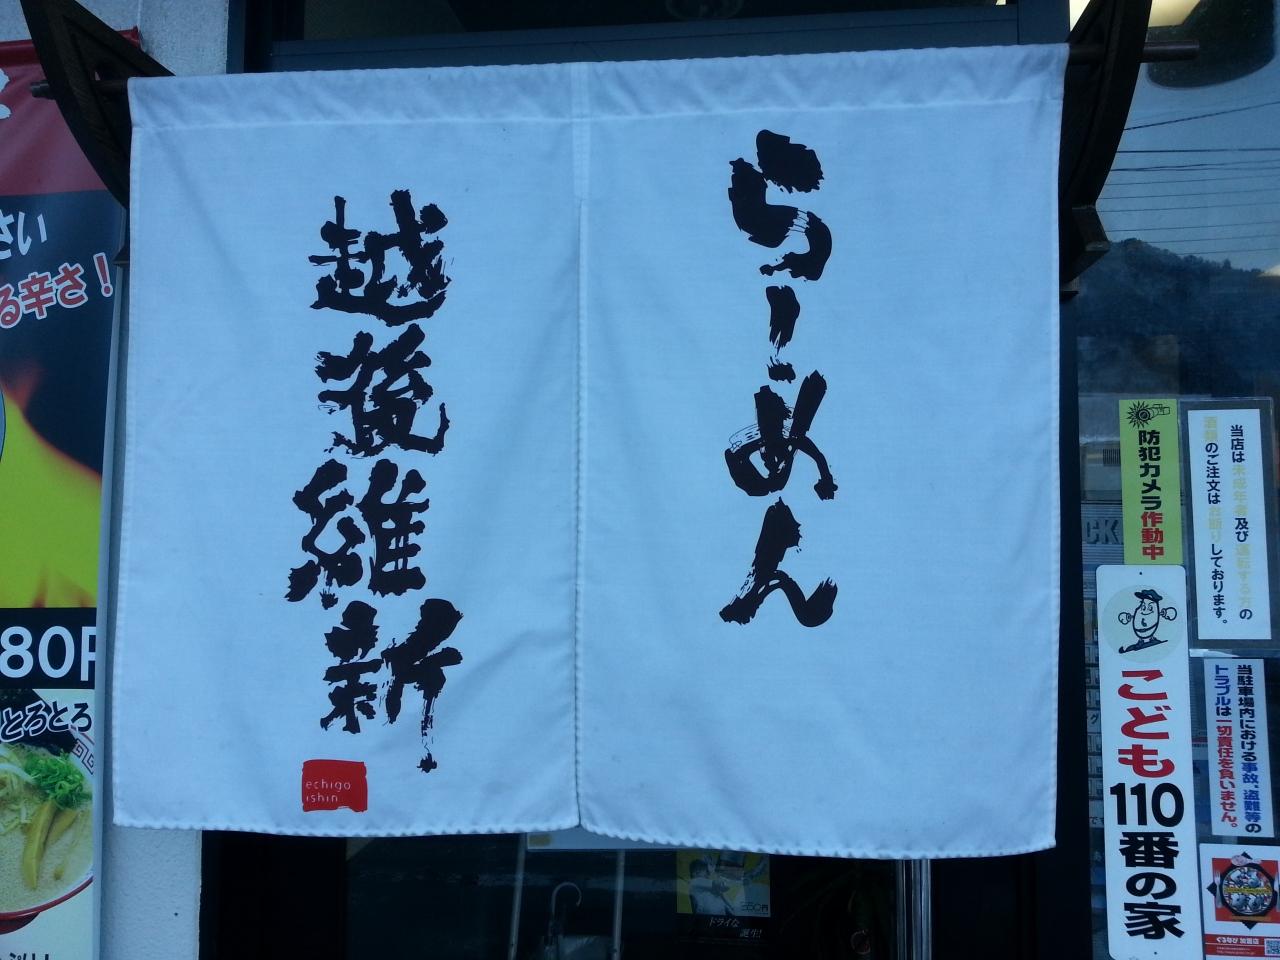 らーめん
越後維新
echigo
ishin
さい
る辛さ！
80P
とろとろ
防犯カメラ作動中
当店は未成年者及び運転する方の
酒類のご注文はお断りしております。
こども110番の家
当駐車場内における事故、盗難等の
トラブルは一切責任を負いません。
ドライな
誕生!
ぐるなび 加盟店